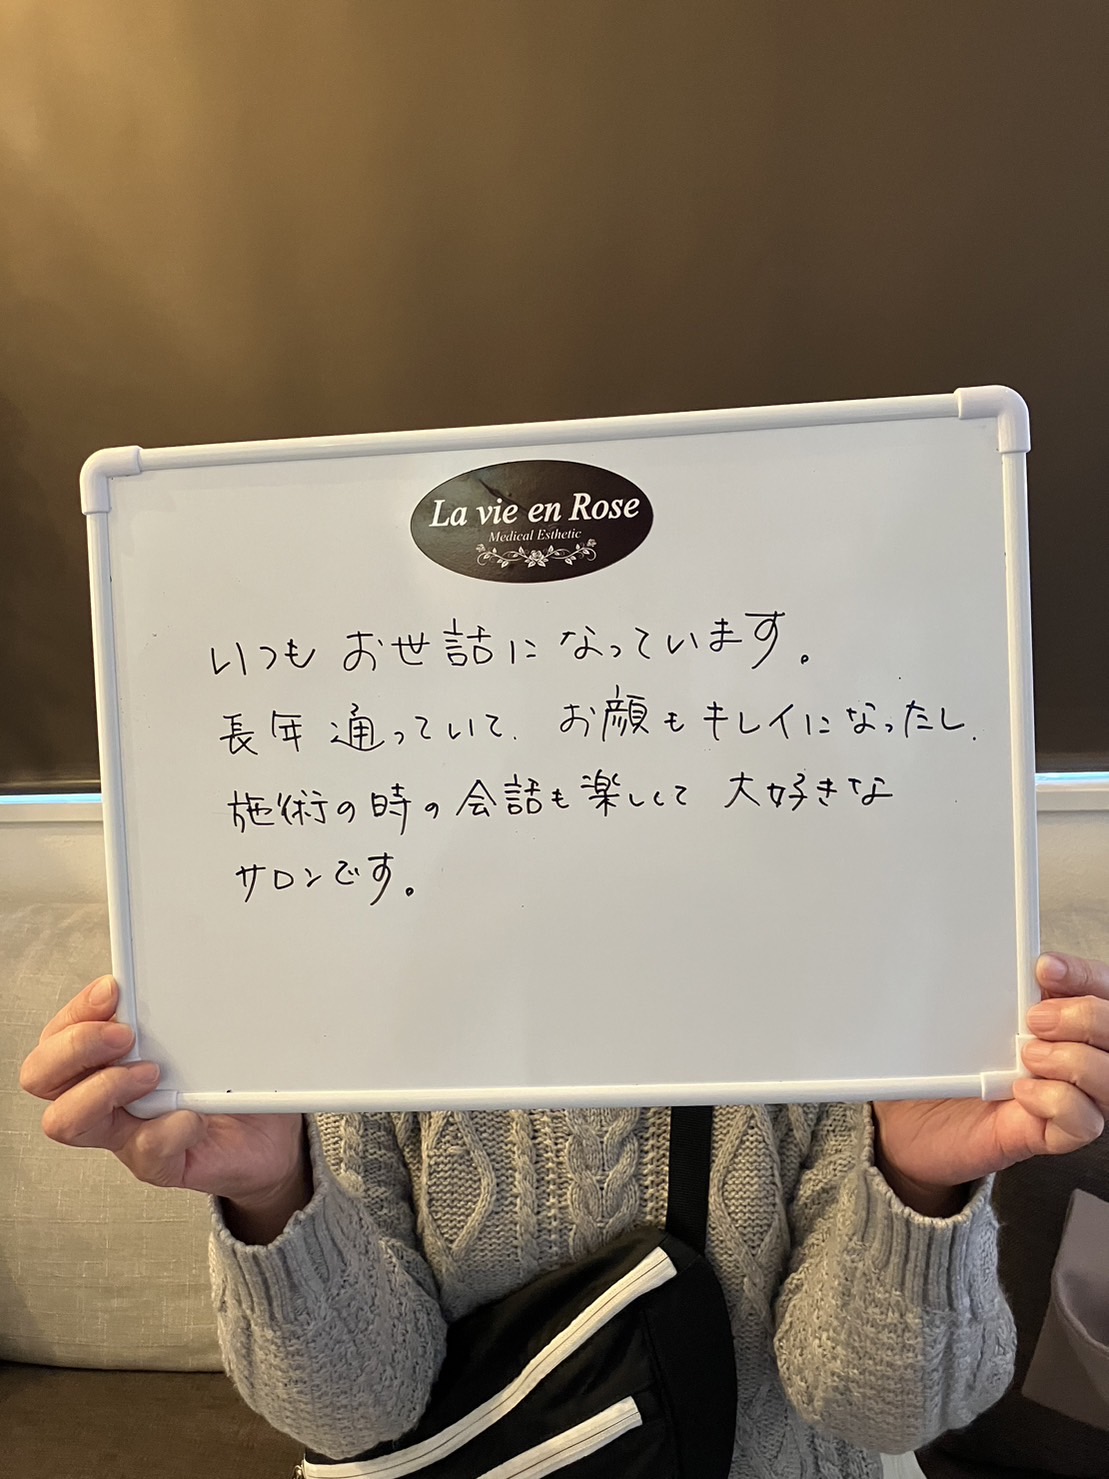 La vie en Rose
Medical Esthetic
いつもお世話になっています。
長年通っていて、お顔もキレイになったし、
施術の時の会話も楽しくて大好きな
サロンです。